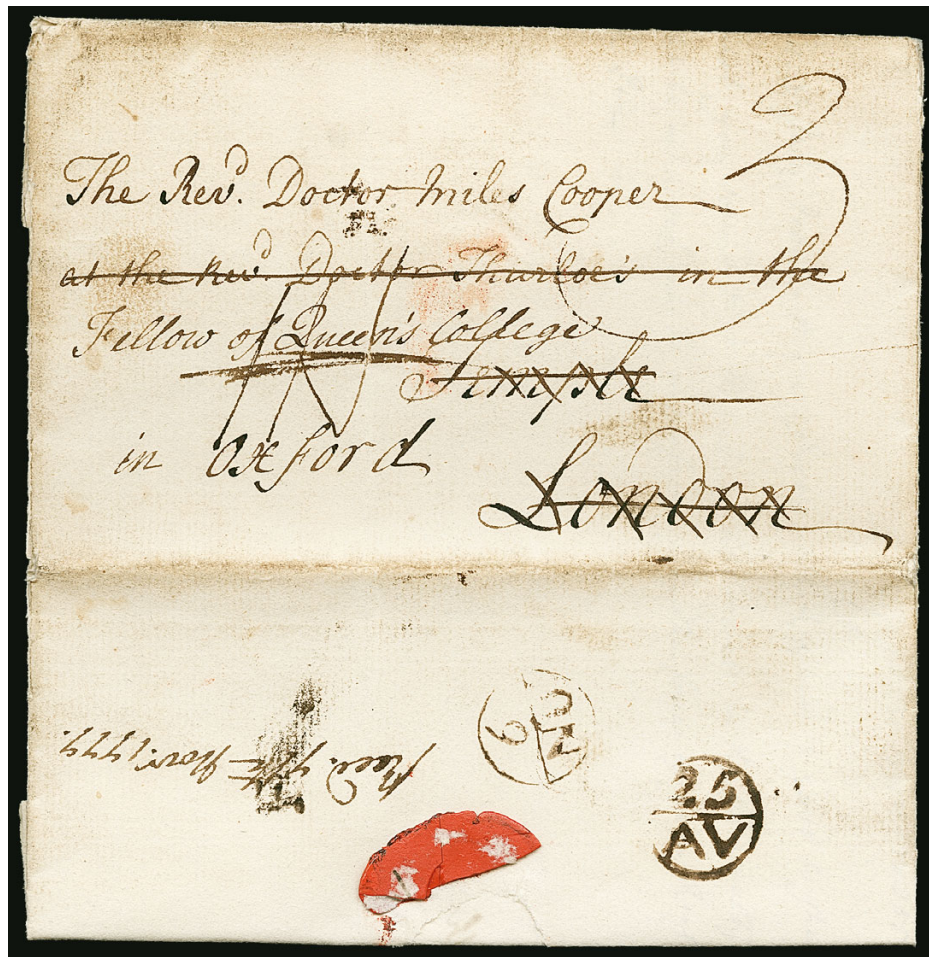 The Revd. Doctor Miles Cooper
3
at the Revd. Doctor Thurloe's in the
Fellow of Queen's College
Temple
in Oxford
London
NO
9
25
AV
Recd. Novr. 1777.